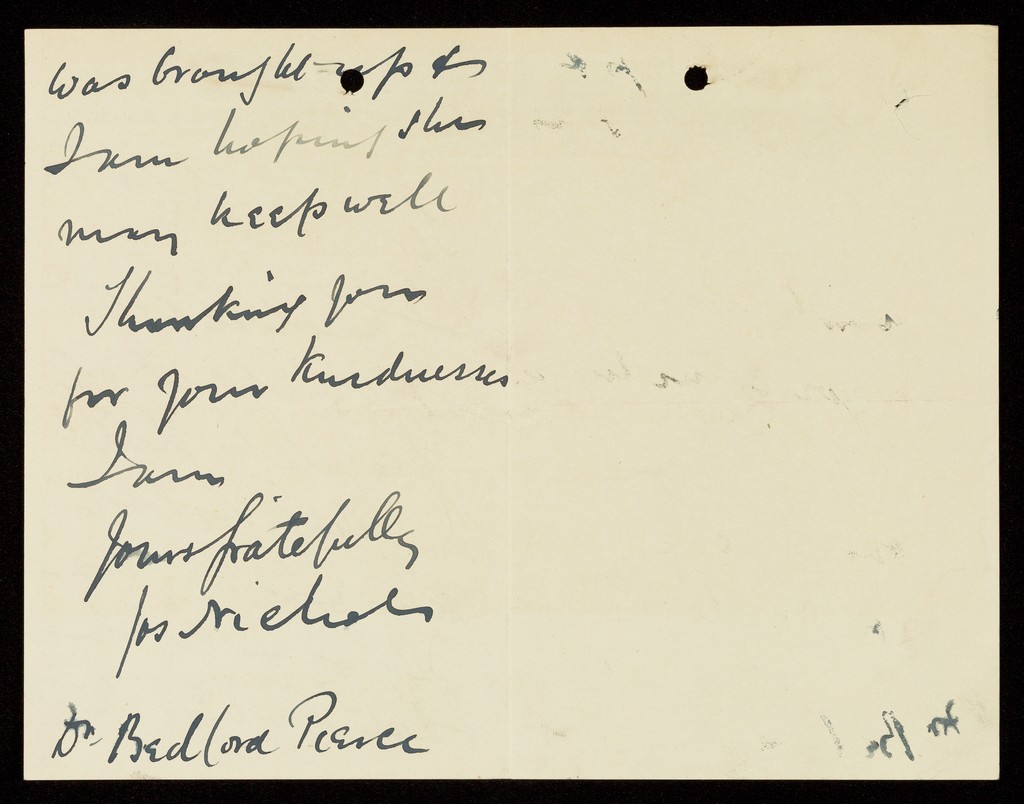 was brought up &
I am hoping she
may keep well
Thanking you
for your Kindnesses
I am
Yours gratefully
Jos Nichols
Dr Bedford Pierce